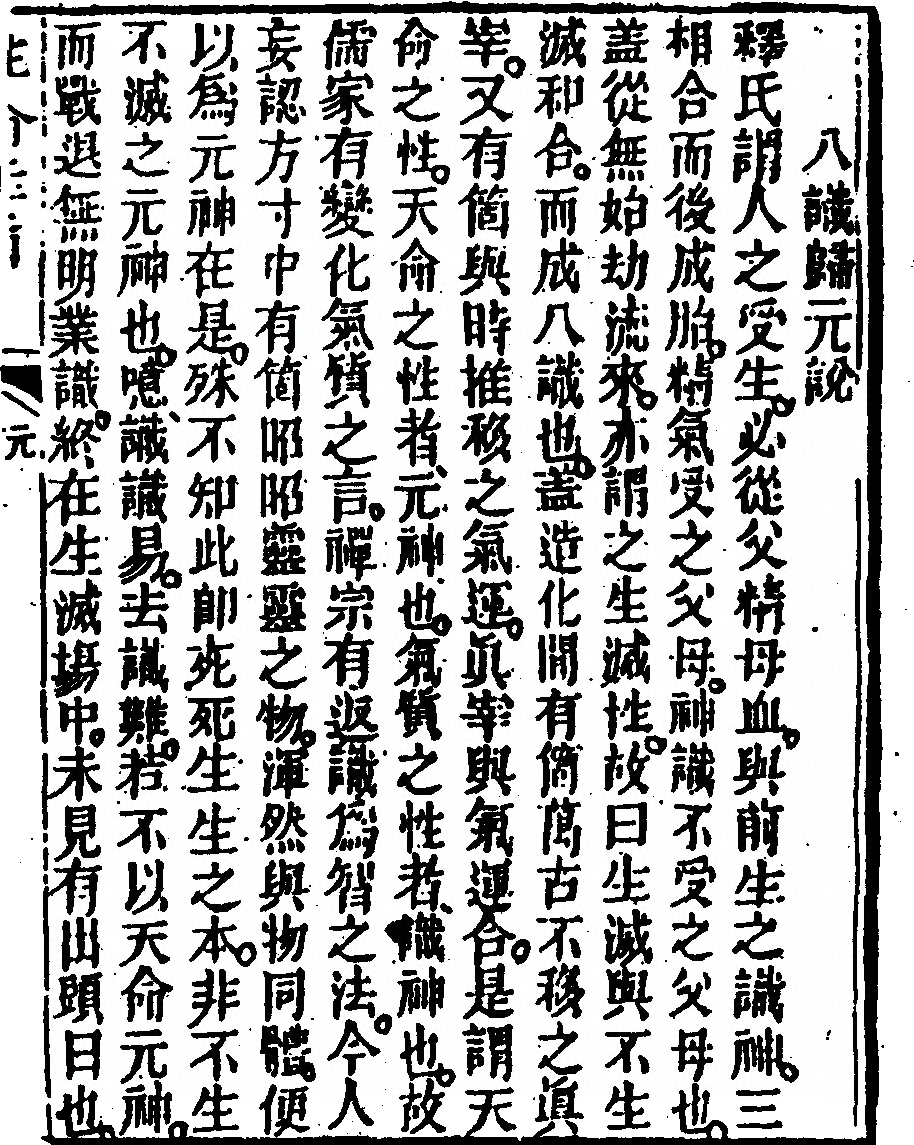 八識歸元說
釋氏謂人之受生。必從父精母血。與前生之識神。三
相合而後成胎。精氣受之父母。神識不受之父母也。
蓋從無始劫流來。亦謂之生滅性。故曰生滅與不生
滅和合。而成八識也。蓋造化間有箇萬古不移之眞
宰。又有箇與時推移之氣運。眞宰與氣運合。是謂天
命之性。天命之性者、元神也。氣質之性者、識神也。故
儒家有變化氣質之言。禪宗有返識爲智之法。今人
妄認方寸中有箇昭昭靈靈之物。渾然與物同體。便
以爲元神在是。殊不知此卽死死生生之本。非不生
不滅之元神也。噫、識識易。去識難。若不以天命元神。
而戰退無明業識。終在生滅場中。未見有出頭日也。
元